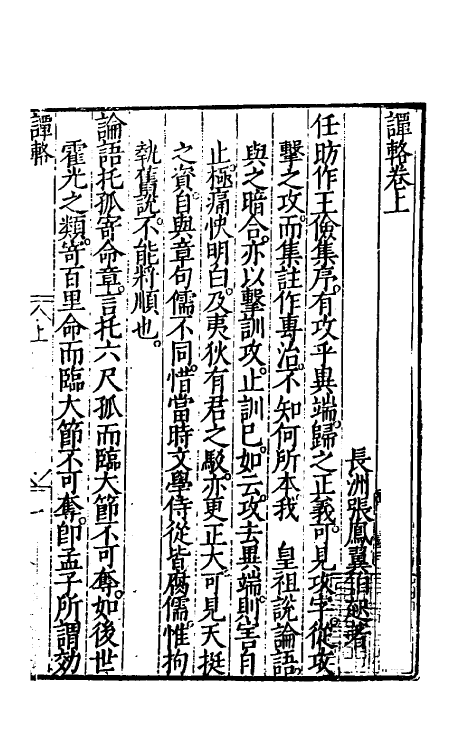 譚輅卷上
長洲張鳳翼伯起著
任昉作王儉集序。有攻乎異端。歸之正義。可見攻字從攻
擊之攻。而集註作專治。不知何所本。我 皇祖說論語。
與之暗合。亦以擊訓攻。止訓已。如云。攻去異端。則害自
止。極痛快明白。及夷狄有君之駁。亦更正大。可見天挺
之資。自與章句儒不同。惜當時文學侍從。皆腐儒。惟拘
執舊說。不能將順也。
論語托孤寄命章。言托六尺孤而臨大節不可奪。如後世
霍光之類。寄百里命而臨大節不可奪。即孟子所謂効
譚輅
上
一